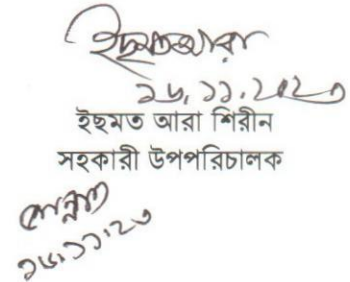 ইছমতআরা
১৬.১১.২০২৩
ইছমত আরা শিরীন
সহকারী উপপরিচালক
১৬.১১.২৩